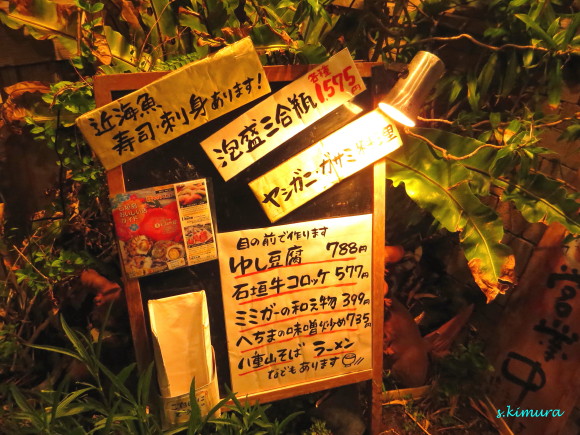 近海魚
寿司・刺身あります!
泡盛三合瓶
各種
1.575円
ヤシガニ・ガサミ
目の前で作ります
ゆし豆腐 788円
石垣牛コロッケ 577円
ミミガーの和え物 399円
へちまの味噌炒め 735円
八重山そば ラーメン
などもあります
s.kimura